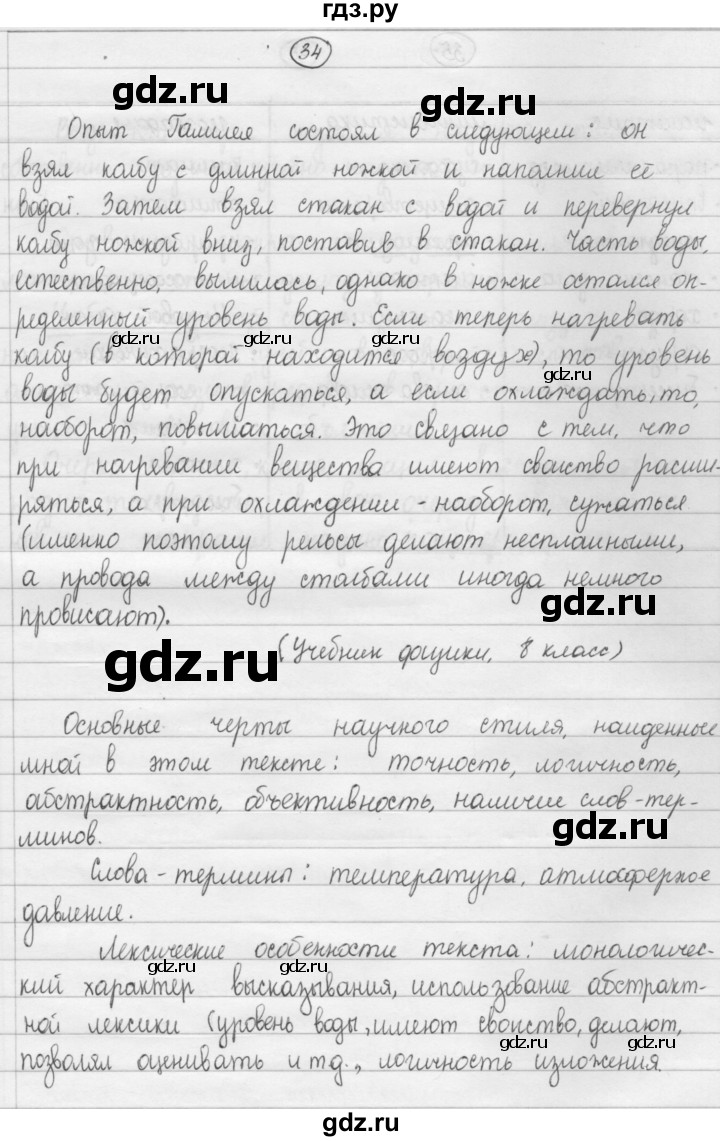 гдз.ру
34
Опыт Галилея состоял в следующем: он
взял колбу с длинной ножкой и наполнил её
водой. Затем взял стакан с водой и перевернул
колбу ножкой вниз, поставив в стакан. Часть воды,
естественно, вылилась, однако в ножке остался оп-
ределенный уровень воды. Если теперь нагревать
колбу (в которой находится воздух), то уровень
воды будет опускаться, а если охлаждать, то,
наоборот, повышаться. Это связано с тем, что
при нагревании вещества имеют свойство расши-
ряться, а при охлаждении - наоборот, сужаться
(именно поэтому рельсы делают несплошными,
а провода между столбами иногда немного
провисают).
(Учебник физики, 8 класс)
Основные черты научного стиля, найденные
мной в этом тексте: точность, логичность,
абстрактность, объективность, наличие слов-тер-
минов.
Слова-термины: температура, атмосферное
давление.
Лексические особенности текста: монологичес-
кий характер высказывания, использование абстракт-
ной лексики (уровень воды, имеют свойство, делают,
позволял оценивать и т.д., логичность изложения.
gdz.ru
gdz.ru
gdz.ru
gdz.ru
gdz.ru
gdz.ru
gdz.ru
gdz.ru
gdz.ru
gdz.ru
gdz.ru
gdz.ru
gdz.ru
gdz.ru